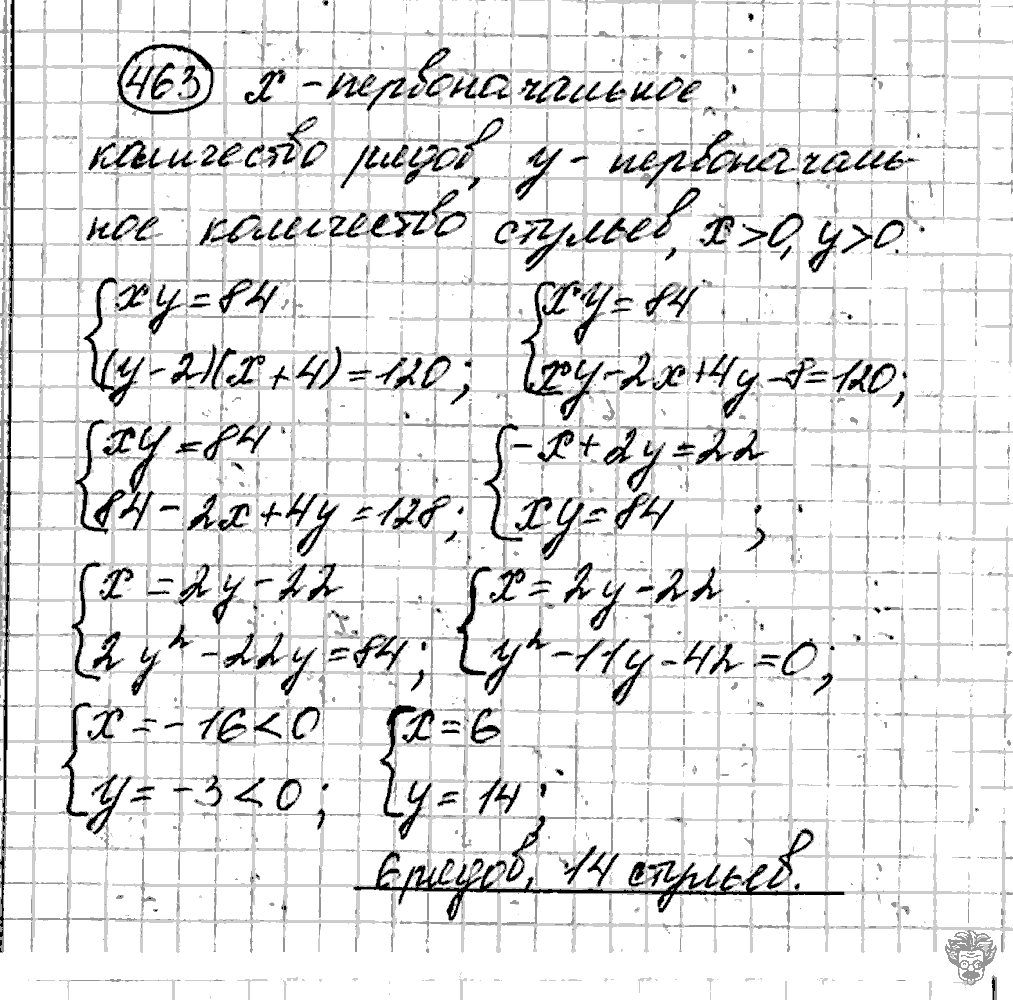 463 x - первоначальное
количество рядов, y - первоначаль-
ное количество стульев, x>0, y>0.
{xy=84 {xy=84
(y-2)(x+4)=120; xy-2x+4y-8=120;
{xy=84 {-x+2y=22
84-2x+4y=128; xy=84 ;
{x=2y-22 {x=2y-22
2y²-22y=84; y²-11y-42=0;
{x=-16<0 {x=6
y=-3<0; y=14;
6 рядов, 14 стульев.